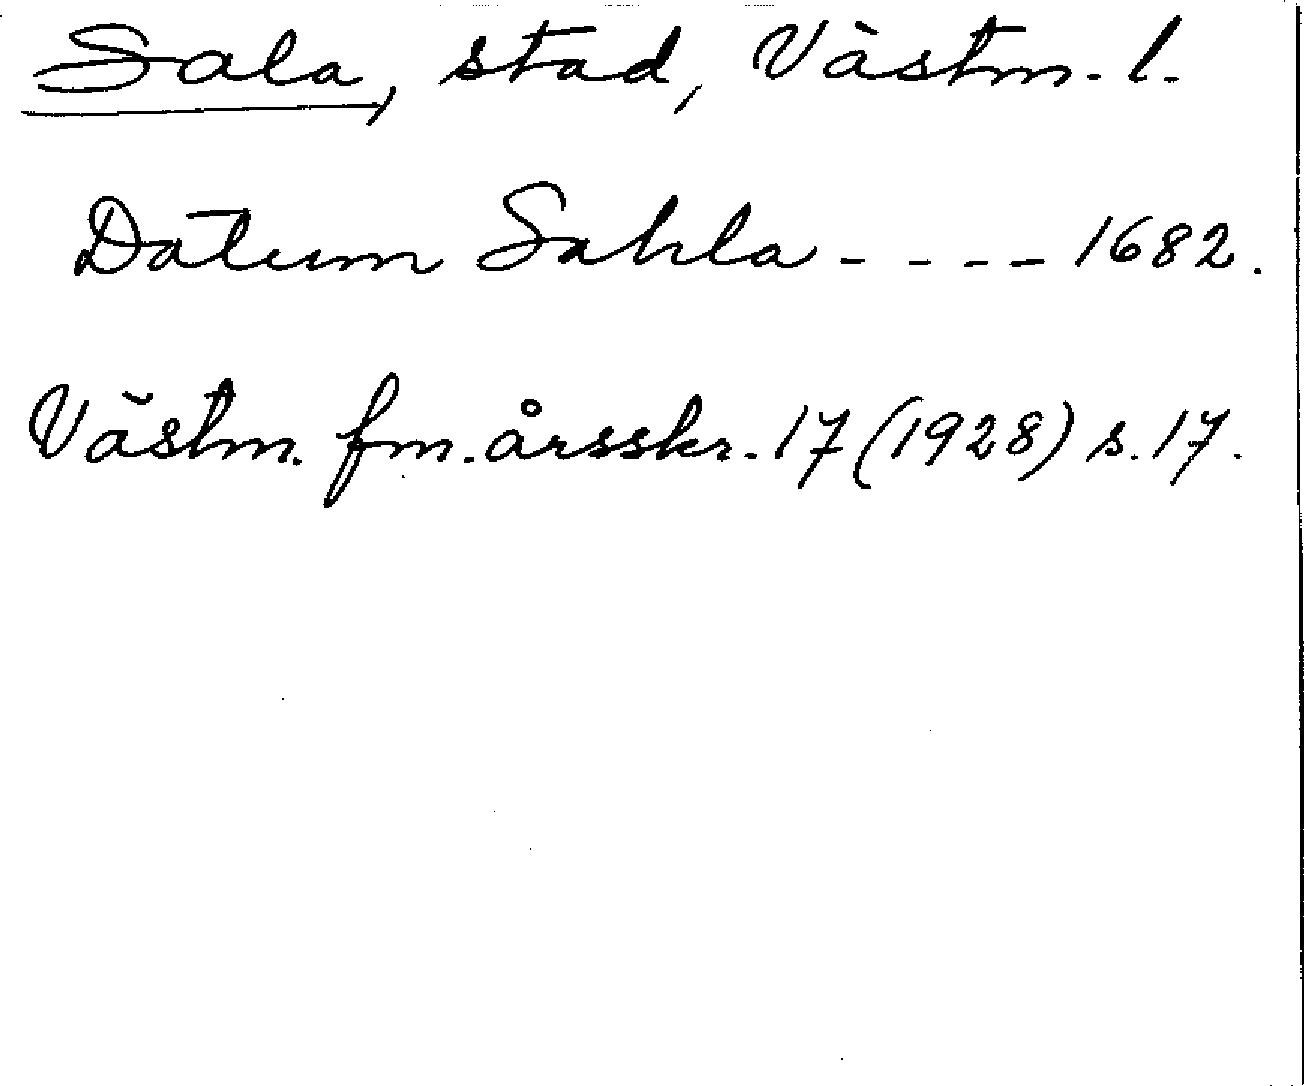 Sala, stad, Västm. l.
Datum Sahla - - - - 1682.
Västm. fm. årsskr. 17 (1928) s. 17.